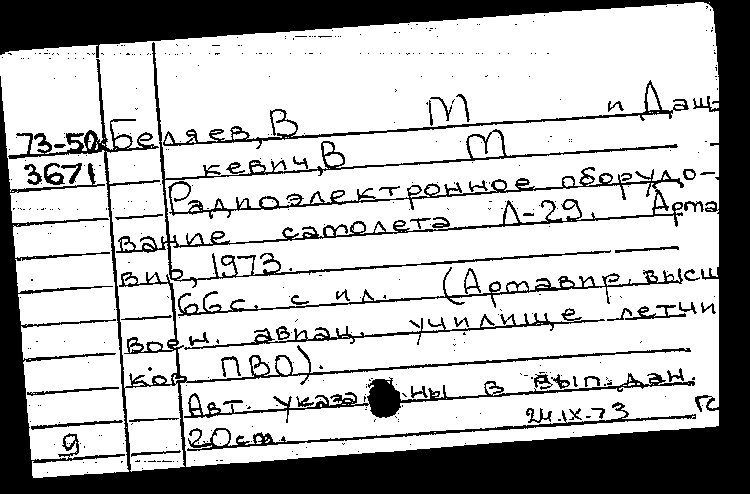 73-50 Беляев, В М и Даш-
3671 кевич, В М
Радиоэлектронное оборудо-
вание самолета Л-29. Арма
вир, 1973.
66 с. с ил. (Армавир. высш
воен. авиац. училище летчи
ков ПВО).
Авт. указаны в вып. дан.
9 20 см. 24.IX-73 ГС